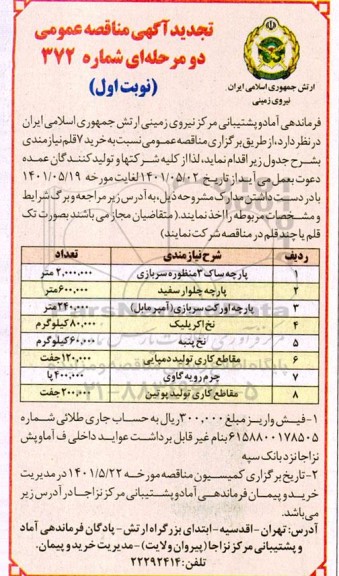 تجدید آگهی مناقصه عمومی
دو مرحله‌ای شماره ۳۷۲
(نوبت اول)
ارتش جمهوری اسلامی ایران
نیروی زمینی
فرماندهی آماد و پشتیبانی مرکز نیروی زمینی ارتش جمهوری اسلامی ایران
در نظر دارد، از طریق برگزاری مناقصه عمومی نسبت به خرید ۷ قلم نیازمندی
بشرح جدول زیر اقدام نماید، لذا از کلیه شرکتها و تولید کنندگان عمده
دعوت بعمل می آید از تاریخ ۱۴۰۱/۰۵/۰۲ لغایت مورخه ۱۴۰۱/۰۵/۱۹
با در دست داشتن مدارک مشروحه ذیل، به آدرس زیر مراجعه و برگ شرایط
و مشخصات مربوطه را اخذ نمایند. (متقاضیان مجاز می باشند بصورت تک
قلم یا چند قلم در مناقصه شرکت نمایند)
ردیف شرح نیازمندی تعداد
۱ پارچه ساک ۳ منظوره سربازی ۲,۰۰۰,۰۰۰ متر
۲ پارچه چلوار سفید ۶۰۰,۰۰۰ متر
۳ پارچه اورکت سربازی (آمپر مابل) ۲۴۰,۰۰۰ متر
۴ نخ اکریلیک ۸۰,۰۰۰ کیلوگرم
۵ نخ پنبه ۶۰,۰۰۰ کیلوگرم
۶ مقاطع کاری تولید دمپایی ۱۲۰,۰۰۰ جفت
۷ چرم رویه گاوی ۴۰۰,۰۰۰ پا
۸ مقاطع کاری تولید پوتین ۲۰۰,۰۰۰ جفت
۱- فیش واریز مبلغ ۳۰۰,۰۰۰ ریال به حساب جاری طلائی شماره
۶۱۵۸۸۰۰۱۷۸۵۰۵ بنام غیر قابل برداشت عواید داخلی ف آماد و پش
نزاجا نزد بانک سپه
۲- تاریخ برگزاری کمیسیون مناقصه مورخه ۱۴۰۱/۵/۲۲ در مدیریت
خرید و پیمان فرماندهی آماد و پشتیبانی مرکز نزاجا در آدرس زیر
می‌باشد.
آدرس: تهران- اقدسیه- ابتدای بزرگراه ارتش- پادگان فرماندهی آماد
و پشتیبانی مرکز نزاجا (پیروان ولایت)- مدیریت خرید و پیمان.
تلفن: ۲۲۲۹۲۴۱۴